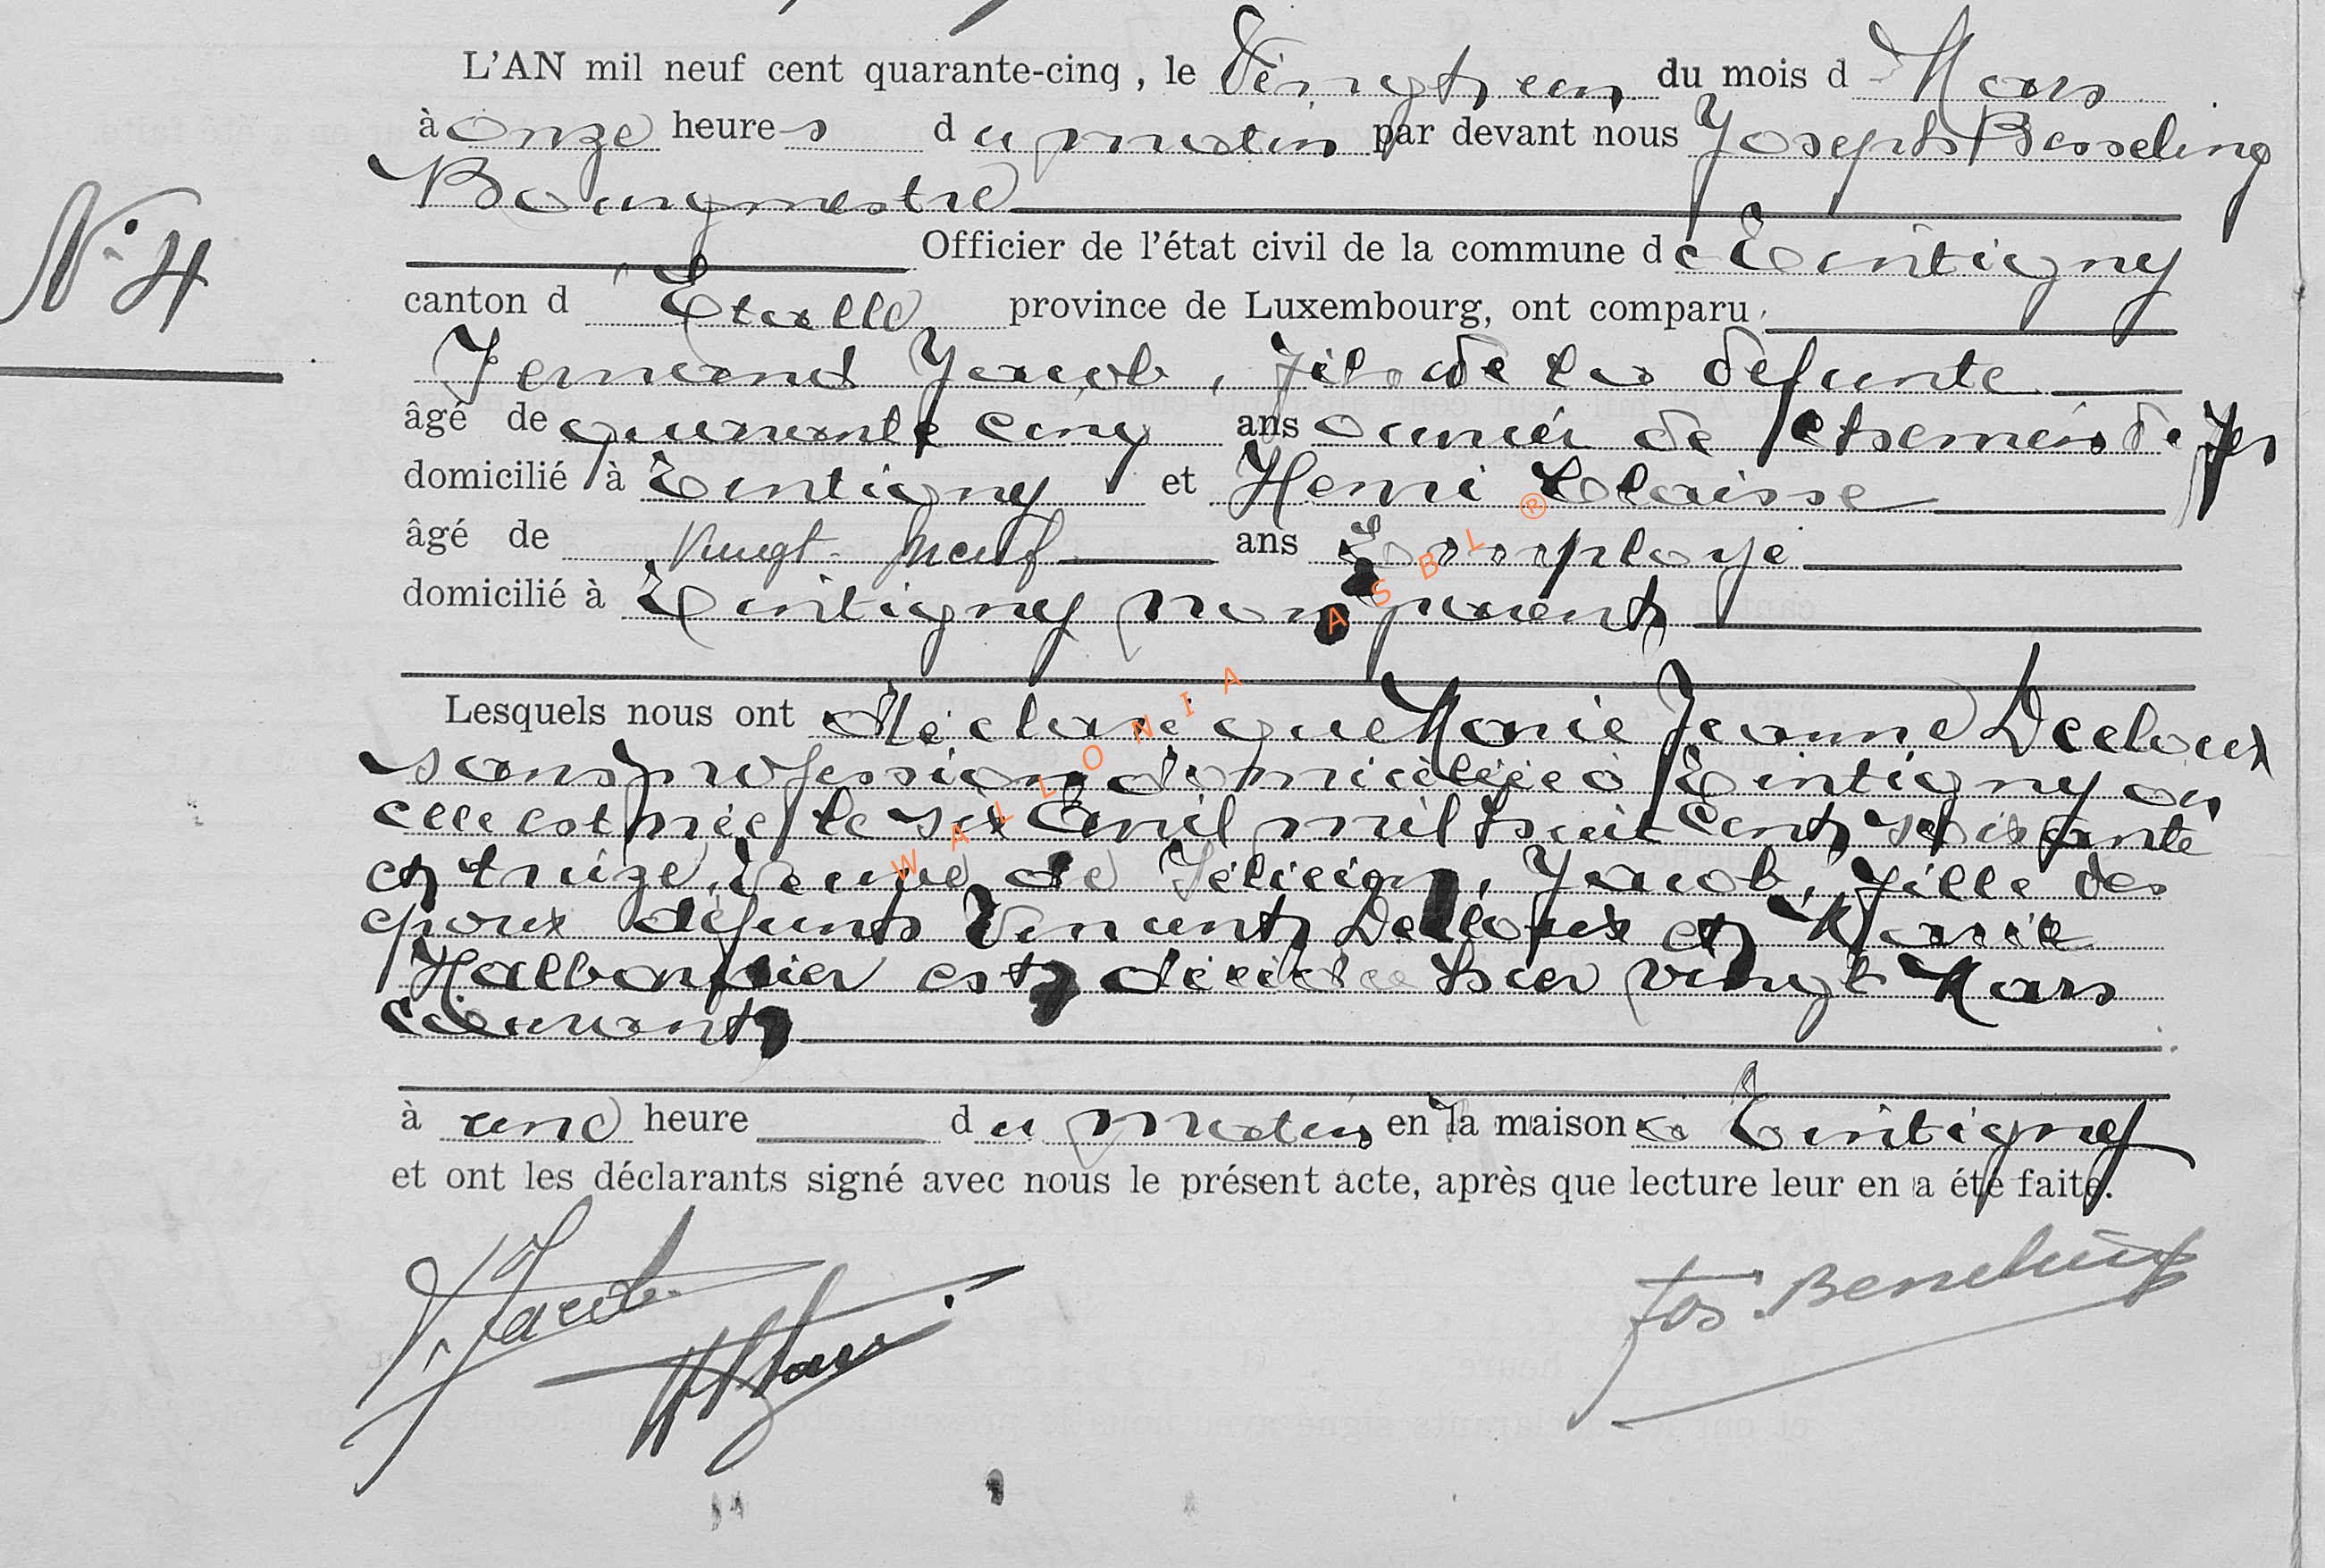 L'AN mil neuf cent quarante-cinq, le Vingt un du mois d Mars
à onze heures du matin par devant nous Joseph Besseling
Bourgmestre
N° 4
Officier de l'état civil de la commune de Tintigny
canton d'Etalle province de Luxembourg, ont comparu
Fernand Jacob, fils de la défunte
âgé de quarante cinq ans ouvrier de chemin de fer
domicilié à Tintigny et Henri Claisse
âgé de vingt-neuf ans Employé
domicilié à Tintigny non parent
Lesquels nous ont déclaré que Marie Jeanne Decloux
sans profession domiciliée à Tintigny où
elle est née le six Avril mil huit cent soixante
et treize, veuve de Félicien, Jacob, fille des
époux défunts Vincent Decloux et Marie
est décédée hier vingt Mars
courant
à une heure du matin en la maison à Tintigny
et ont les déclarants signé avec nous le présent acte, après que lecture leur en a été faite.
F. Jacob
Jos. Besseling
WALLONIA ASBL ®